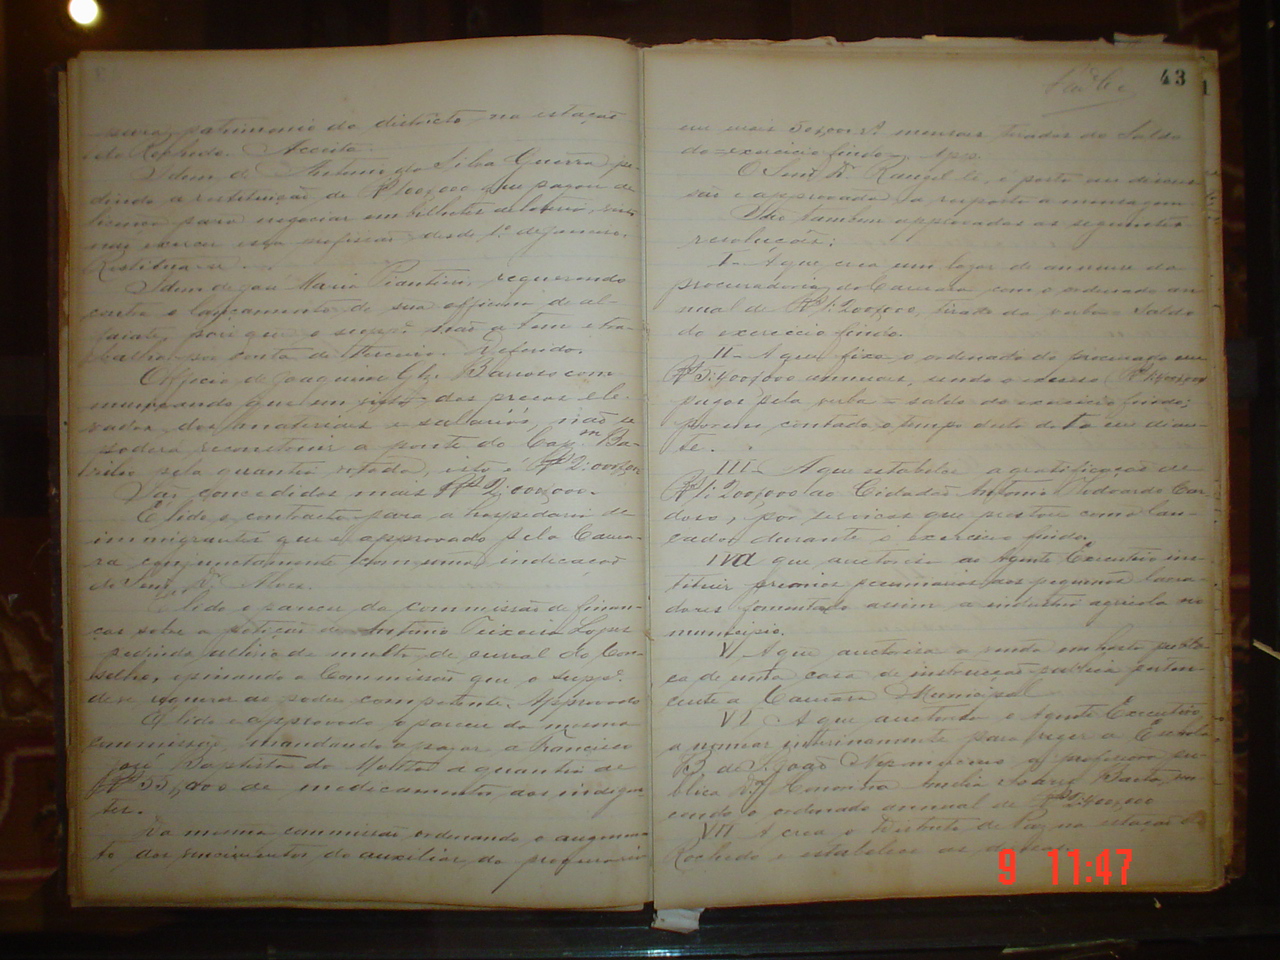 patrimonio do districto na estação
do Rochedo. Acceita.
Idem de Antonio da Silva Guerra pe-
dindo a restituição de Rs 100,000 que pagou de
para negociar em bilhetes de loteria, visto
não exercer essa profissão desde 1º de Janeiro.
Restitua-se.
Idem de José Maria Piantini, requerendo
o lançamento de sua officina de al-
faiate, porque o suppe não a tem e tra-
balha por conta de terceiro. Deferido.
Officio de Joaquim Glz Barroso com
municando que em vista dos preços ele-
vados dos materiais e salarios, não se
poderá reconstruir a ponte do Capm
pela quantia votada, isto é Rs 2:000,000
São concedidos mais Rs 2:000,000.
É lido o contracto para a hospedaria de
immigrantes que é approvado pela Cama-
ra conjunctamente com uma indicação
do Snr. Dr.
É lido o parecer da commissão de finan-
ças sobre a petição de Antonio Teixeira Lopes
pedindo allivio de multa de curral do Con-
selho, opinando a Commissão que o suppe.
deve requerer ao poder competente. Approvado
É lido e approvado o parecer da mesma
commissão, mandando pagar a Francisco
José Baptista de Mattos a quantia de
de medicamentos aos indigen-
tes.
Da mesma commissão ordenando o augmen-
to dos vencimentos do auxiliar do procurador
43
em mais 50,000 rs mensaes tirados do Saldo
do exercicio findo. App.
O Snr. Dr. Rangel lê, é posta em discus-
são e approvada a resposta a mensagem
São tambem approvadas as seguintes
resoluções:
I - A que crea um logar de da
procuradoria da Camara com o ordenado an-
nual de Rs 1:200,000, tirado da verba Saldo
do exercicio findo.
II - A que fixa o ordenado do procurador em
annuaes, sendo o excesso
pagos pela verba = saldo do exercicio findo;
porem contado o tempo desta data em dian-
te.
III A que estabelece a gratificação de
Rs 1:200,000 ao Cidadão Antonio Theodoro Car-
doso, por serviços que prestou como lan-
çador durante o exercicio findo.
IV A que auctorisa ao Agente Executivo ins-
tituir premios pecuniarios aos pequenos lavra-
dores fomentando assim a industria agricola no
municipio.
V A que auctorisa a venda em hasta publi-
ca de uma casa de instrucção publica perten-
cente a Camara Municipal
VI A que auctorisa o Agente Executivo
a nomear interinamente para reger a Escola
de S. João Nepomuceno a professora pu-
blica D. Amelia
cendo o ordenado annual de
VII A crea o Districto de Paz na estação do
Rochedo e estabelece as divisas.
9 11:47